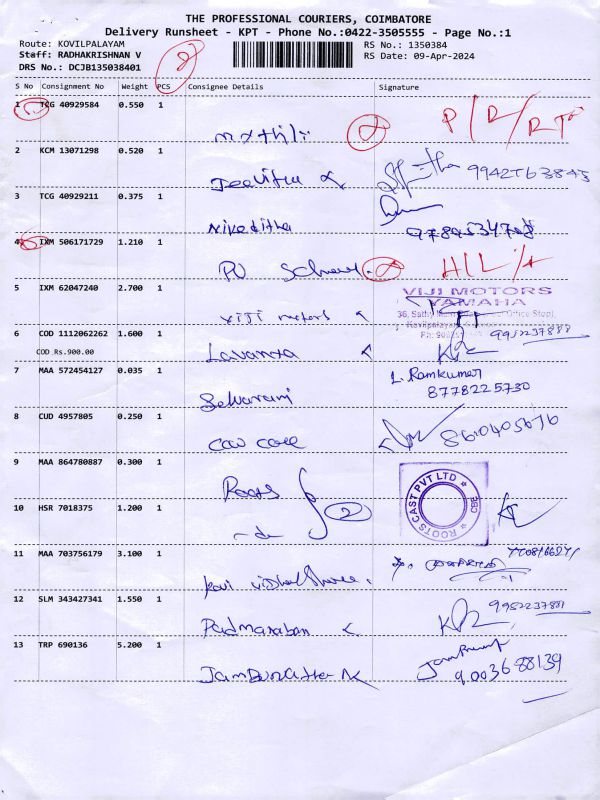 THE PROFESSIONAL COURIERS, COIMBATORE
Delivery Runsheet - KPT - Phone No.:0422-3505555 - Page No.:1
Route: KOVILPALAYAM RS No.: 1350384
Staff: RADHAKRISHNAN V RS Date: 09-Apr-2024
DRS No.: DCJB135038401
2
S No Consignment No Weight PCS Consignee Details Signature
1 TCG 40929584 0.550 1
P/R/RTO
2 KCM 13071298 0.520 1
3 TCG 40929211 0.375 1
Niveditha
4 IXM 506171729 1.210 1
PU School
5 IXM 62047240 2.700 1
VIJI MOTORS
YAMAHA
viji motors
6 COD 1112062262 1.600 1
COD Rs.900.00
Lavanya
7 MAA 572454127 0.035 1
L. Ramkumar
8778225730
Selvarani
8 CUD 4957805 0.250 1
8610405676
Car care
9 MAA 864780887 0.300 1
ROOTS CAST PVT LTD CBE
Roots
10 HSR 7018375 1.200 1
2
- do -
11 MAA 703756179 3.100 1
12 SLM 343427341 1.550 1
9952237881
Padmanaban
13 TRP 690136 5.200 1
9003688139